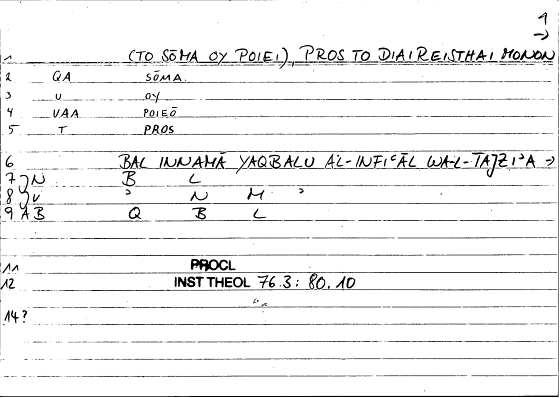 1
→
1 (TO SŌMA OY POIEI), PROS TO DIAIREISTHAI MONON
2 QA SŌMA.
3 U OY
4 VAA POIEŌ
5 T PROS
6 BAL INNAMĀ YAQBALU AL-INFIʿĀL WA-L-TAJZIʾA →
7 N B L
8 U ʾ N M ʾ
9 AB Q B L
11 PROCL
12 INST THEOL 76.3: 80.10
14?